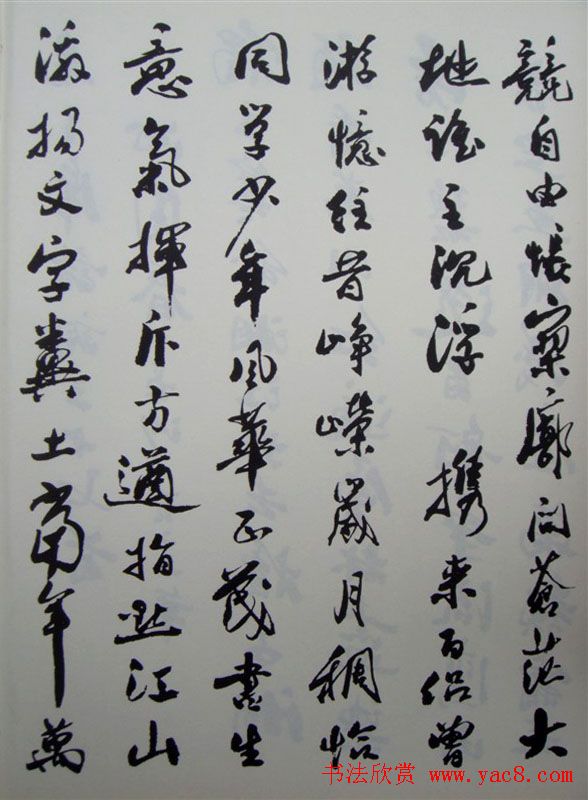 競自由悵寥廓问蒼茫大
地谁主沉浮携来百侣曾
游憶往昔峥嵘歲月稠恰
同学少年风華正茂書生
意氣揮斥方遒指点江山
激揚文字糞土當年萬
书法欣赏 www.yac8.com